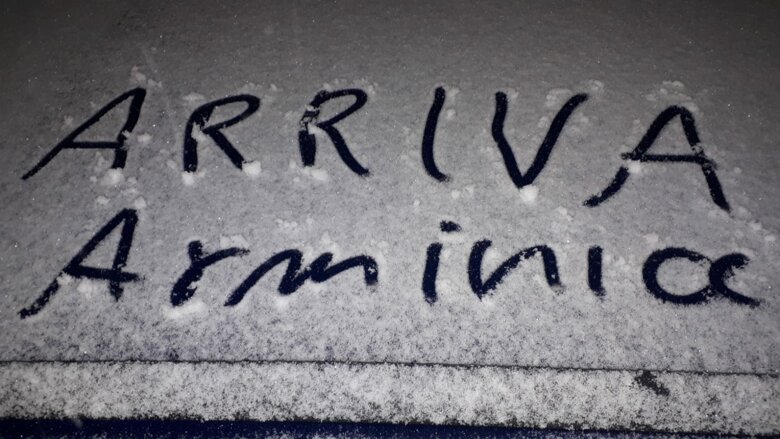 ARRIVA
Arminia